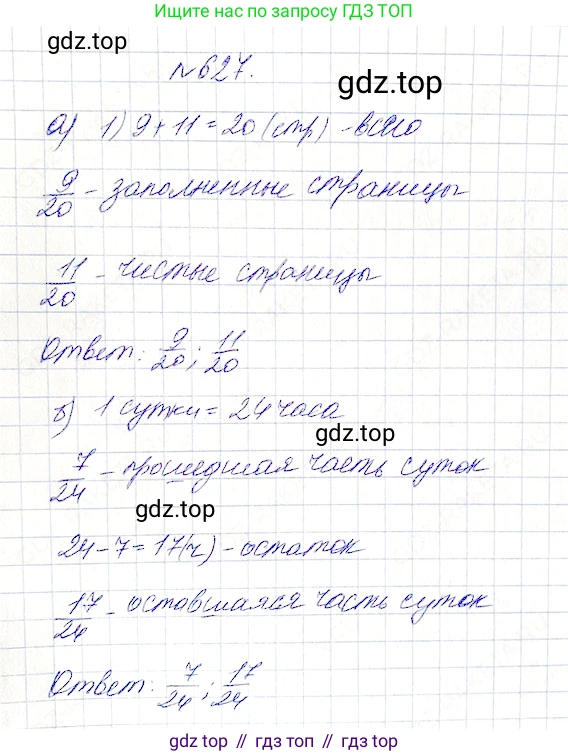 Ищите нас по запросу ГДЗ ТОП
gdz.top
№627.
gdz.top
а) 1) 9+11=20 (стр) - всего
9/20 - заполненные страницы
11/20 - чистые страницы
Ответ: 9/20; 11/20
б) 1 сутки = 24 часа
gdz.top
7/24 - прошедшая часть суток
gdz.top
24-7=17(ч) - остаток
17/24 - оставшаяся часть суток
Ответ: 7/24; 17/24
gdz.top // гдз.топ // gdz.top